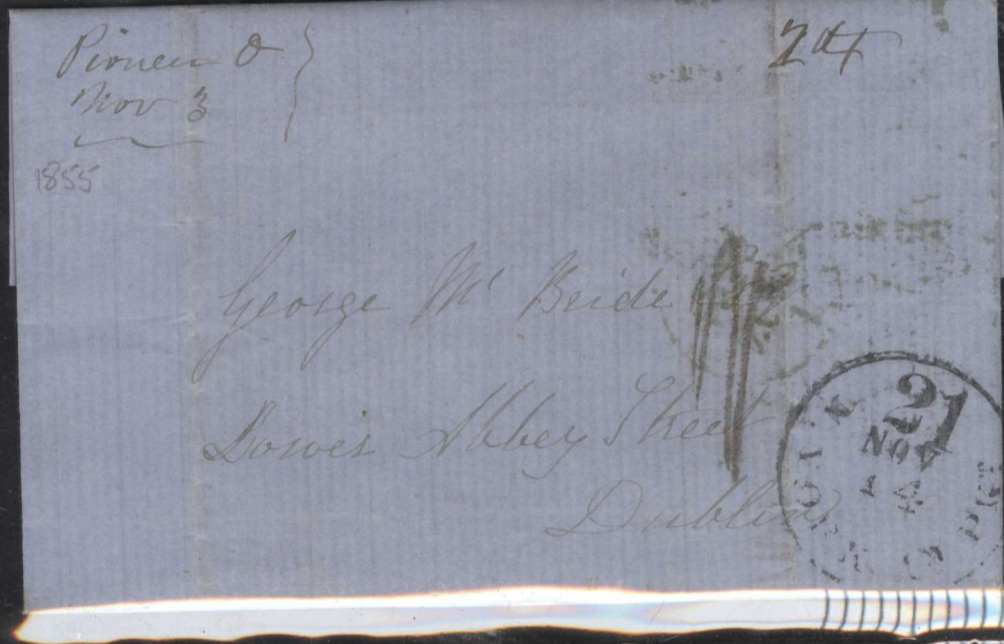 Pioneer &
Nov 3
1855
24
George Mc Bride
Lower Abbey Street
Dublin
21
NOV